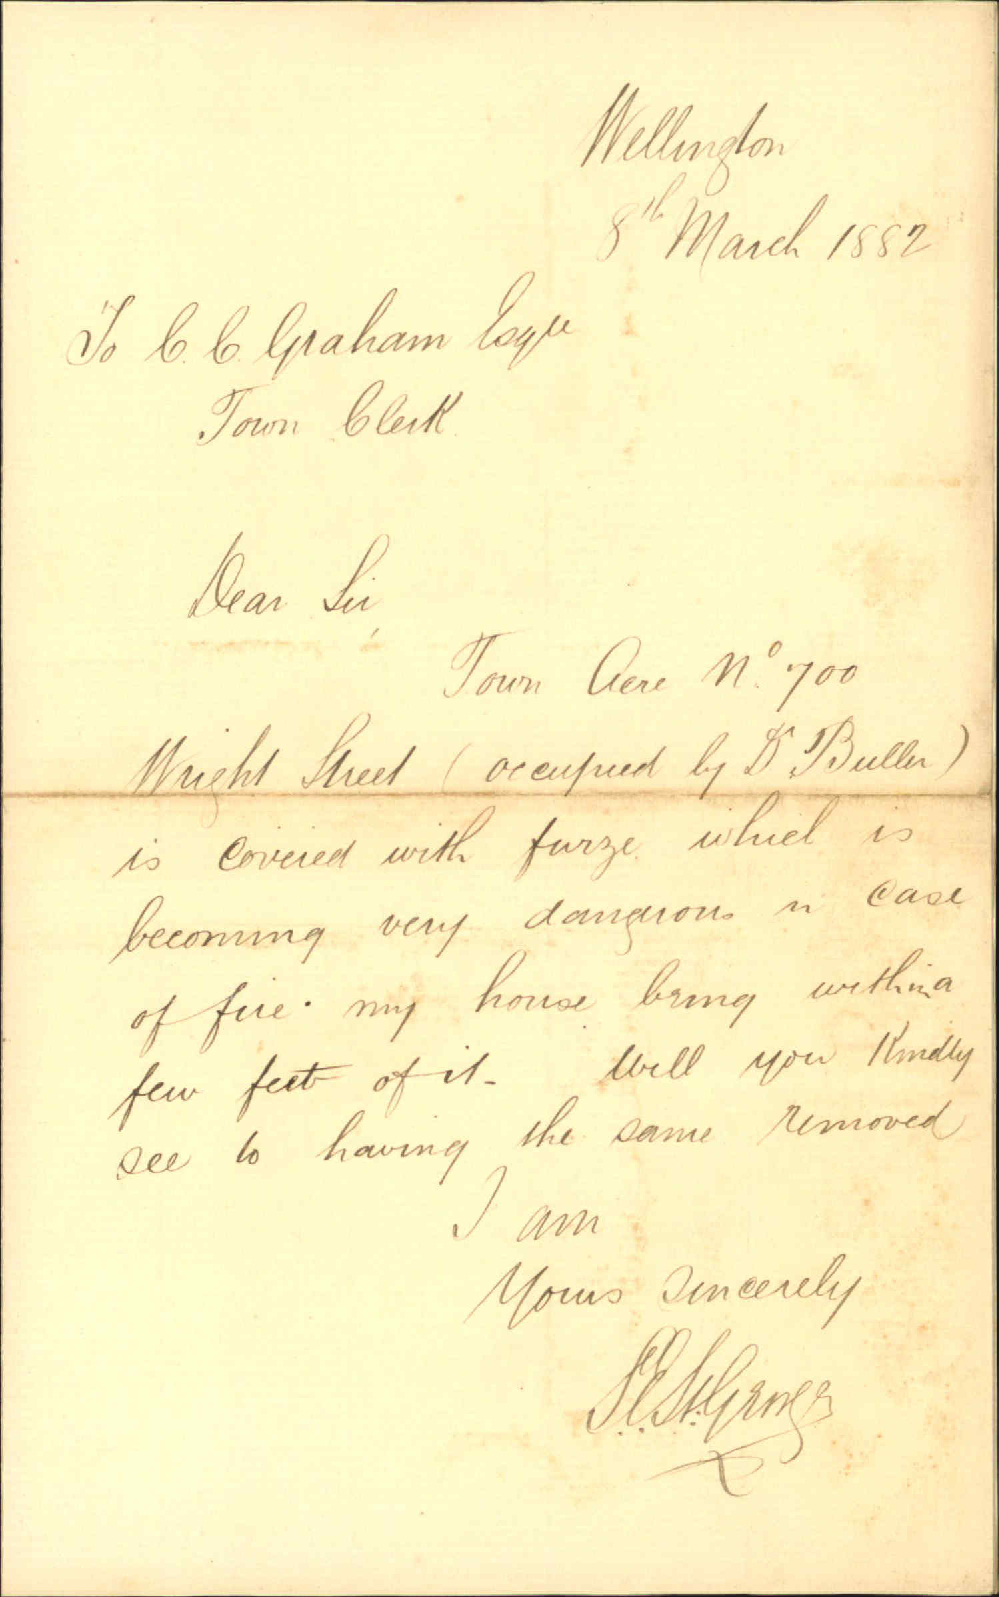 Wellington
8th March 1882
To C. C. Graham Esqre
Town Clerk
Dear Sir,
Town Acre No. 700
Wright Street (occupied by Dr Buller)
is covered with furze which is
becoming very dangrous in case
of fire. my house being within a
few feet of it. Will you Kindly
see to having the same removed
I am
Yours Sincerely
St. George